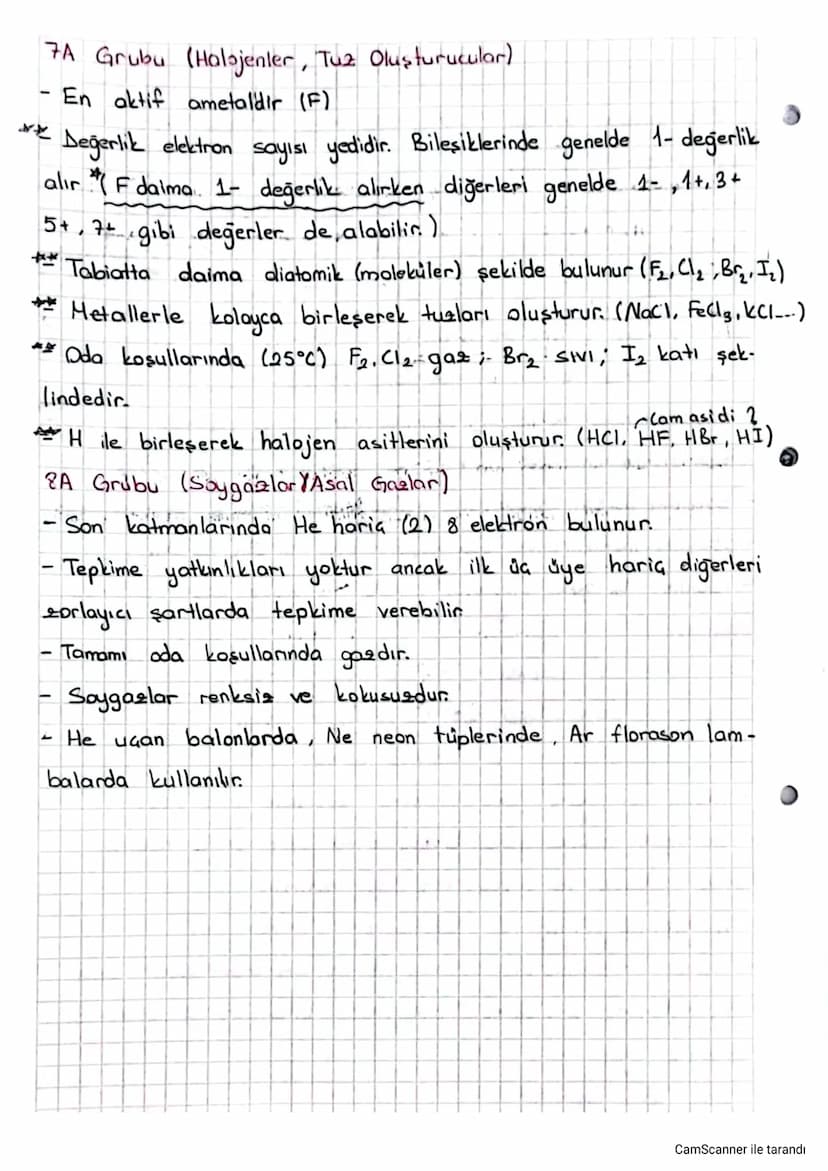 7A Grubu (Halojenler, Tuz Oluşturucular)
- En aktif ametaldir (F)
** Değerlik elektron sayısı yedidir. Bileşiklerinde genelde 1- değerlik
alır *( F daima 1- değerlik alırken diğerleri genelde 1-, 1+, 3+
5+, 7+ gibi değerler de alabilir.)
** Tabiatta daima diatomik (moleküler) şekilde bulunur (F₂, Cl₂, Br₂, I₂)
** Metallerle kolayca birleşerek tuzları oluşturur. (NaCl, FeCl₃, KCl...)
** Oda koşullarında (25°C) F₂, Cl₂ gaz ; Br₂ sıvı ; I₂ katı şek-
lindedir.
Cam asidi ?
** H ile birleşerek halojen asitlerini oluşturur. (HCl, HF, HBr, HI)
8A Grubu (Soygazlar/Asal Gazlar)
- Son katmanlarında He hariç (2) 8 elektron bulunur.
- Tepkime yatkınlıkları yoktur ancak ilk üç üye hariç diğerleri
zorlayıcı şartlarda tepkime verebilir
- Tamamı oda koşullarında gazdır.
- Soygazlar renksiz ve kokusuzdur.
- He uçan balonlarda, Ne neon tüplerinde, Ar florasan lam-
balarda kullanılır.
CamScanner ile tarandı